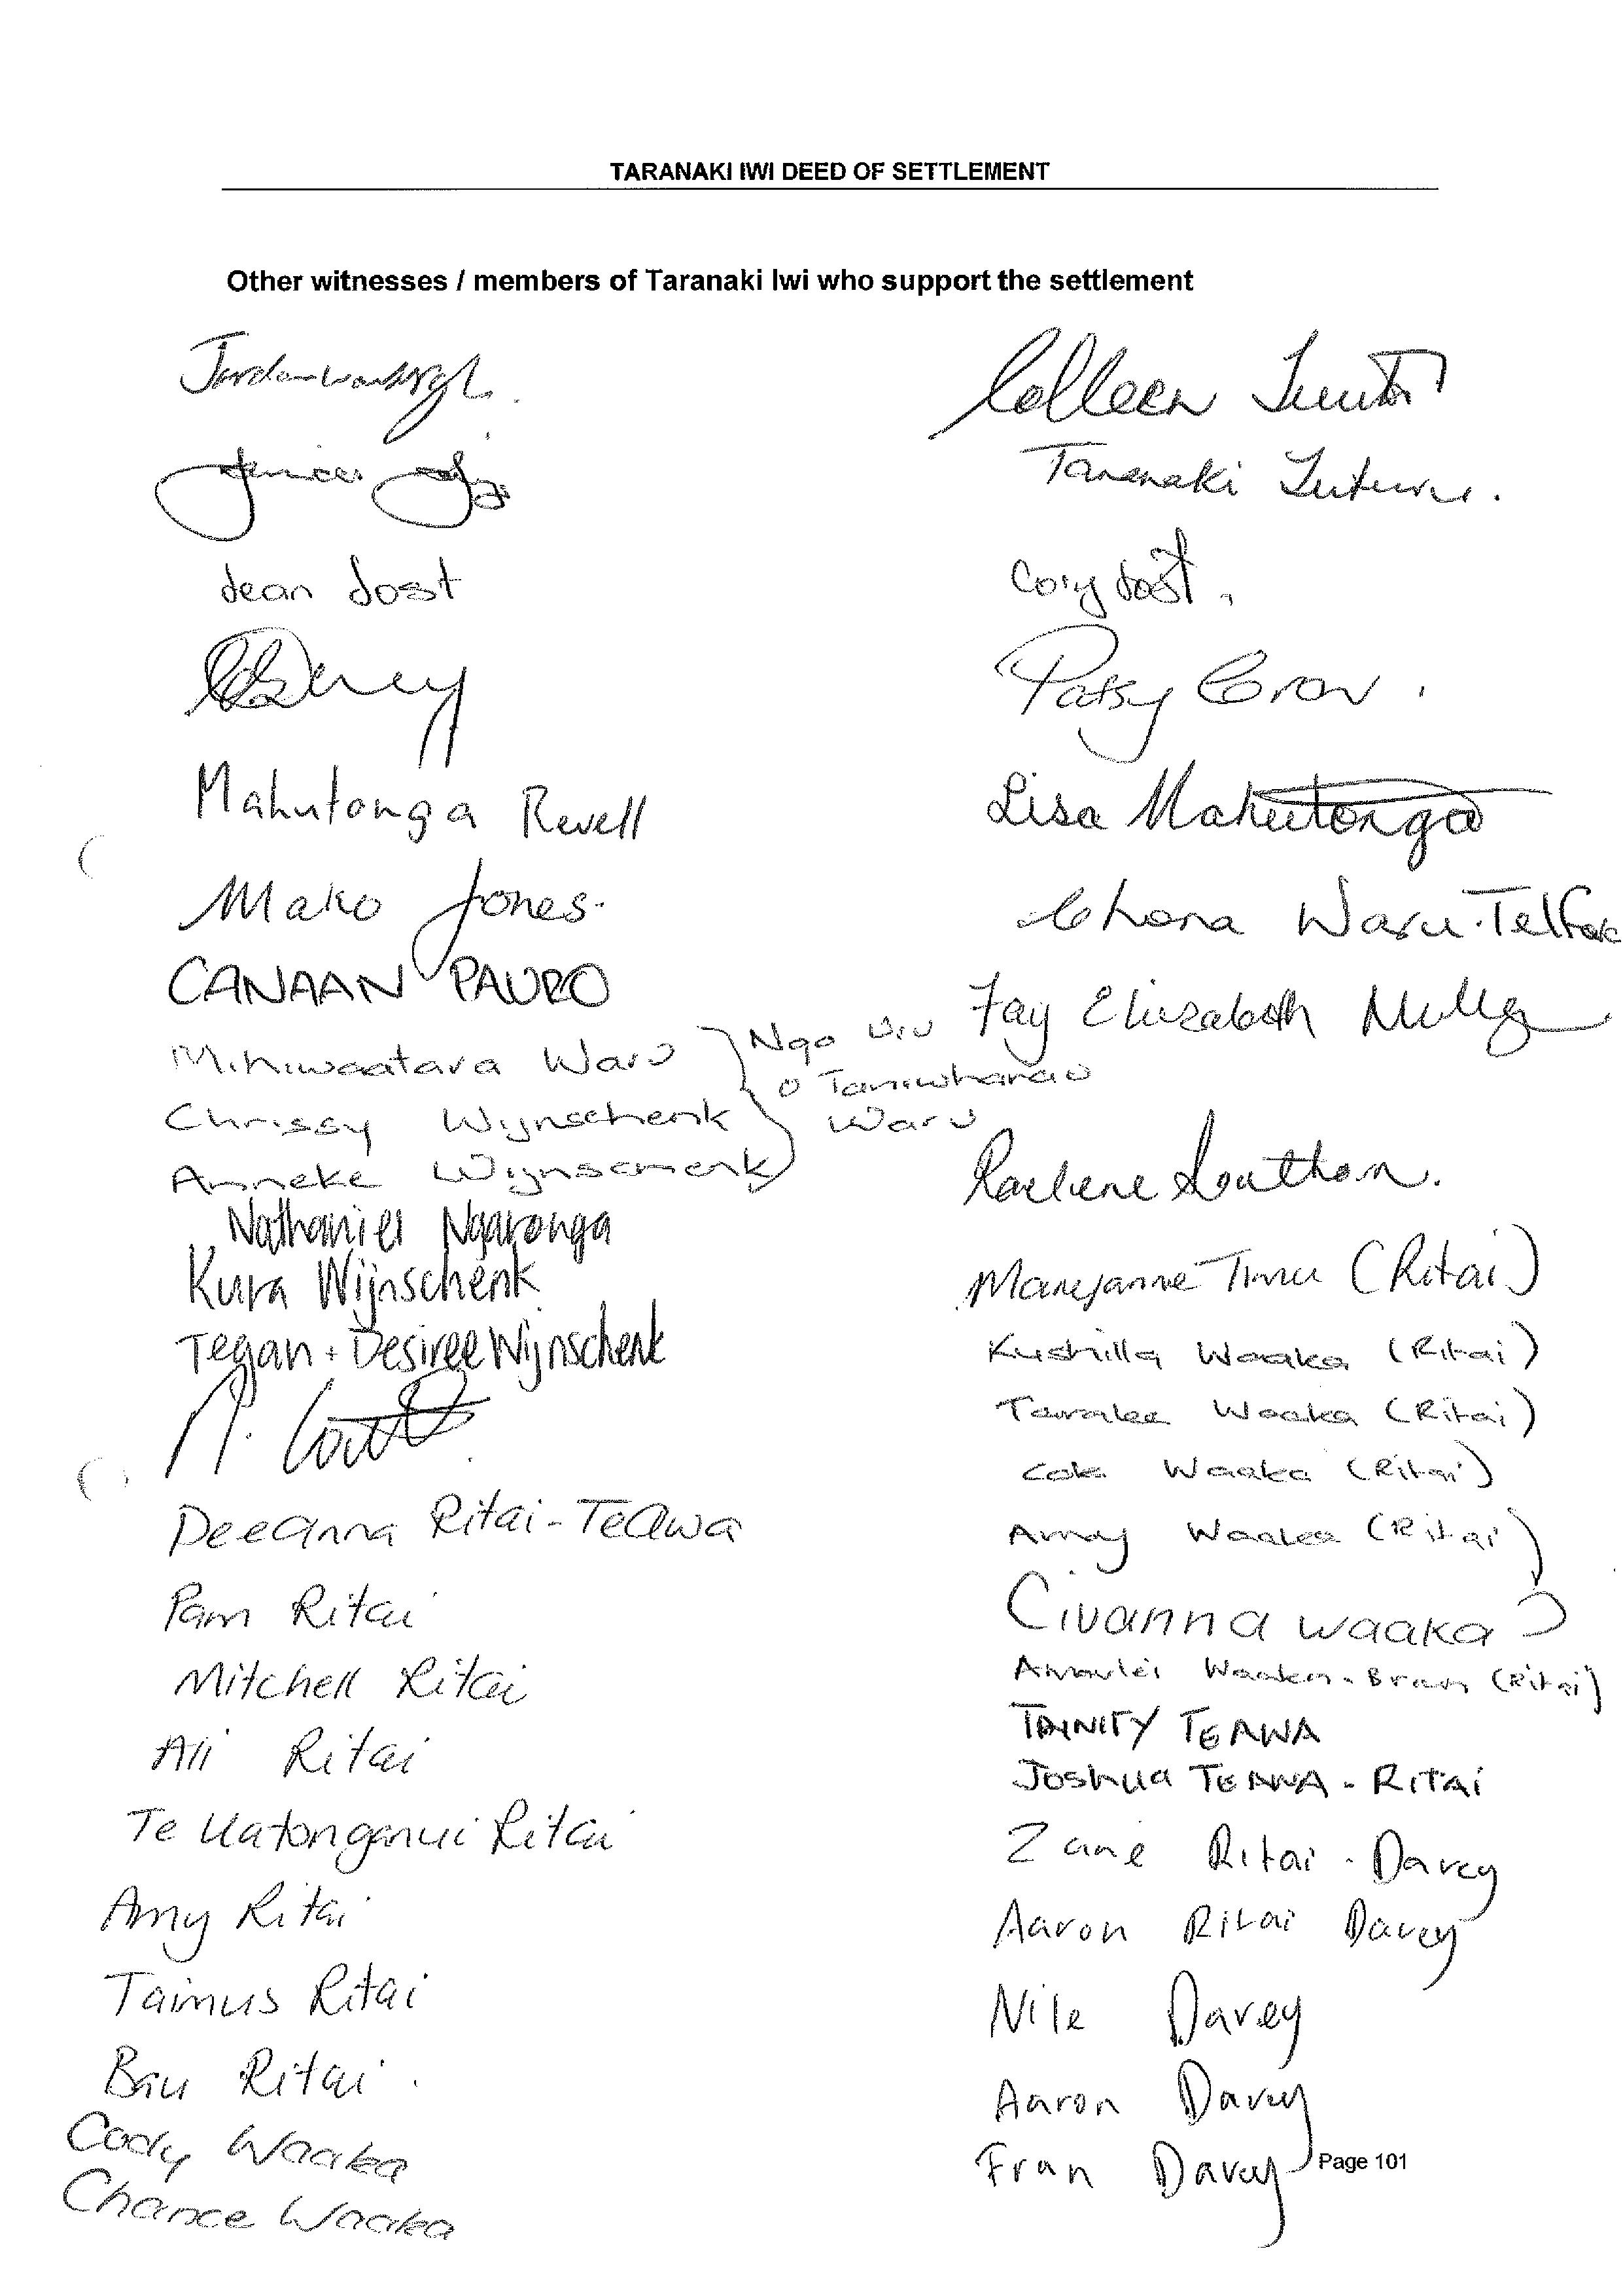 TARANAKI IWI DEED OF SETTLEMENT
Other witnesses / members of Taranaki Iwi who support the settlement
Colleen
Taranaki Tuturu.
Jean Jost
Cory Jost.
Patsy
Mahutonga Revell
Lisa Mahutonga
Mako Jones.
Chona Waru-Telfar
CANAAN PAURO
Fay Elizabeth
Mihiwaatara Waru
Nga Uri
o Taniwharau
Waru
Chrissy Wijnschenk
Anneke Wijnschenk
Raelene Southon.
Nathaniel Ngaronga
Kura Wijnschenk
Maryanne Timu (Ritai)
Tegan + Desiree Wijnschenk
Kushilla Waaka (Ritai)
Taralee Waaka (Ritai)
Waaka (Ritai)
DeeAnna Ritai-TeAwa
Amay Waaka (Ritai)
Pam Ritai
Civanna Waaka
Mitchell Ritai
(Ritai)
TRINITY TEAWA
Ali Ritai
Joshua TEAWA - RITAI
Te Uatonganui Ritai
Zane Ritai-Davey
Amy Ritai
Aaron Ritai Davey
Taimus Ritai
Nile Davey
Ritai.
Aaron Davey
Cody Waaka
Fran Davey
Page 101
Chance Waaka